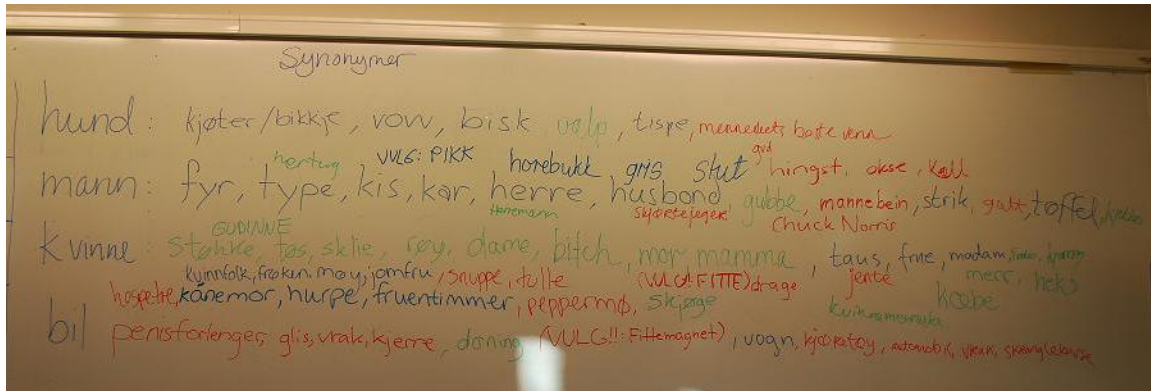 Synonymer
hund: kjøter/bikkje, vow, bisk, valp, tispe, menneskets beste venn
hertug, VULG: PIKK horebukk gris Slut gud hingst, okse, kall
mann: fyr, type, kis, kar, herre, husbond, gubbe, mannebein, strik, galt, tøffel,
Hanemann skjørtejeger Chuck Norris
GUDINNE
Kvinne: Støkke, tøs, sklie, røy, dame, bitch, mor mamma, taus, frue, madam,
kvinnfolk, frøken, møy, jomfru, snuppe, tulle (VULG!: FITTE) drage jente merr, heks
hespetre, kånemor, hurpe, fruentimmer, peppermø, skjøge kvinnemenneske
bil penisforlenger, glis, vrak, kjerre, doning (VULG!!: Fittemagnet), vogn, kjøretøy, automobil,